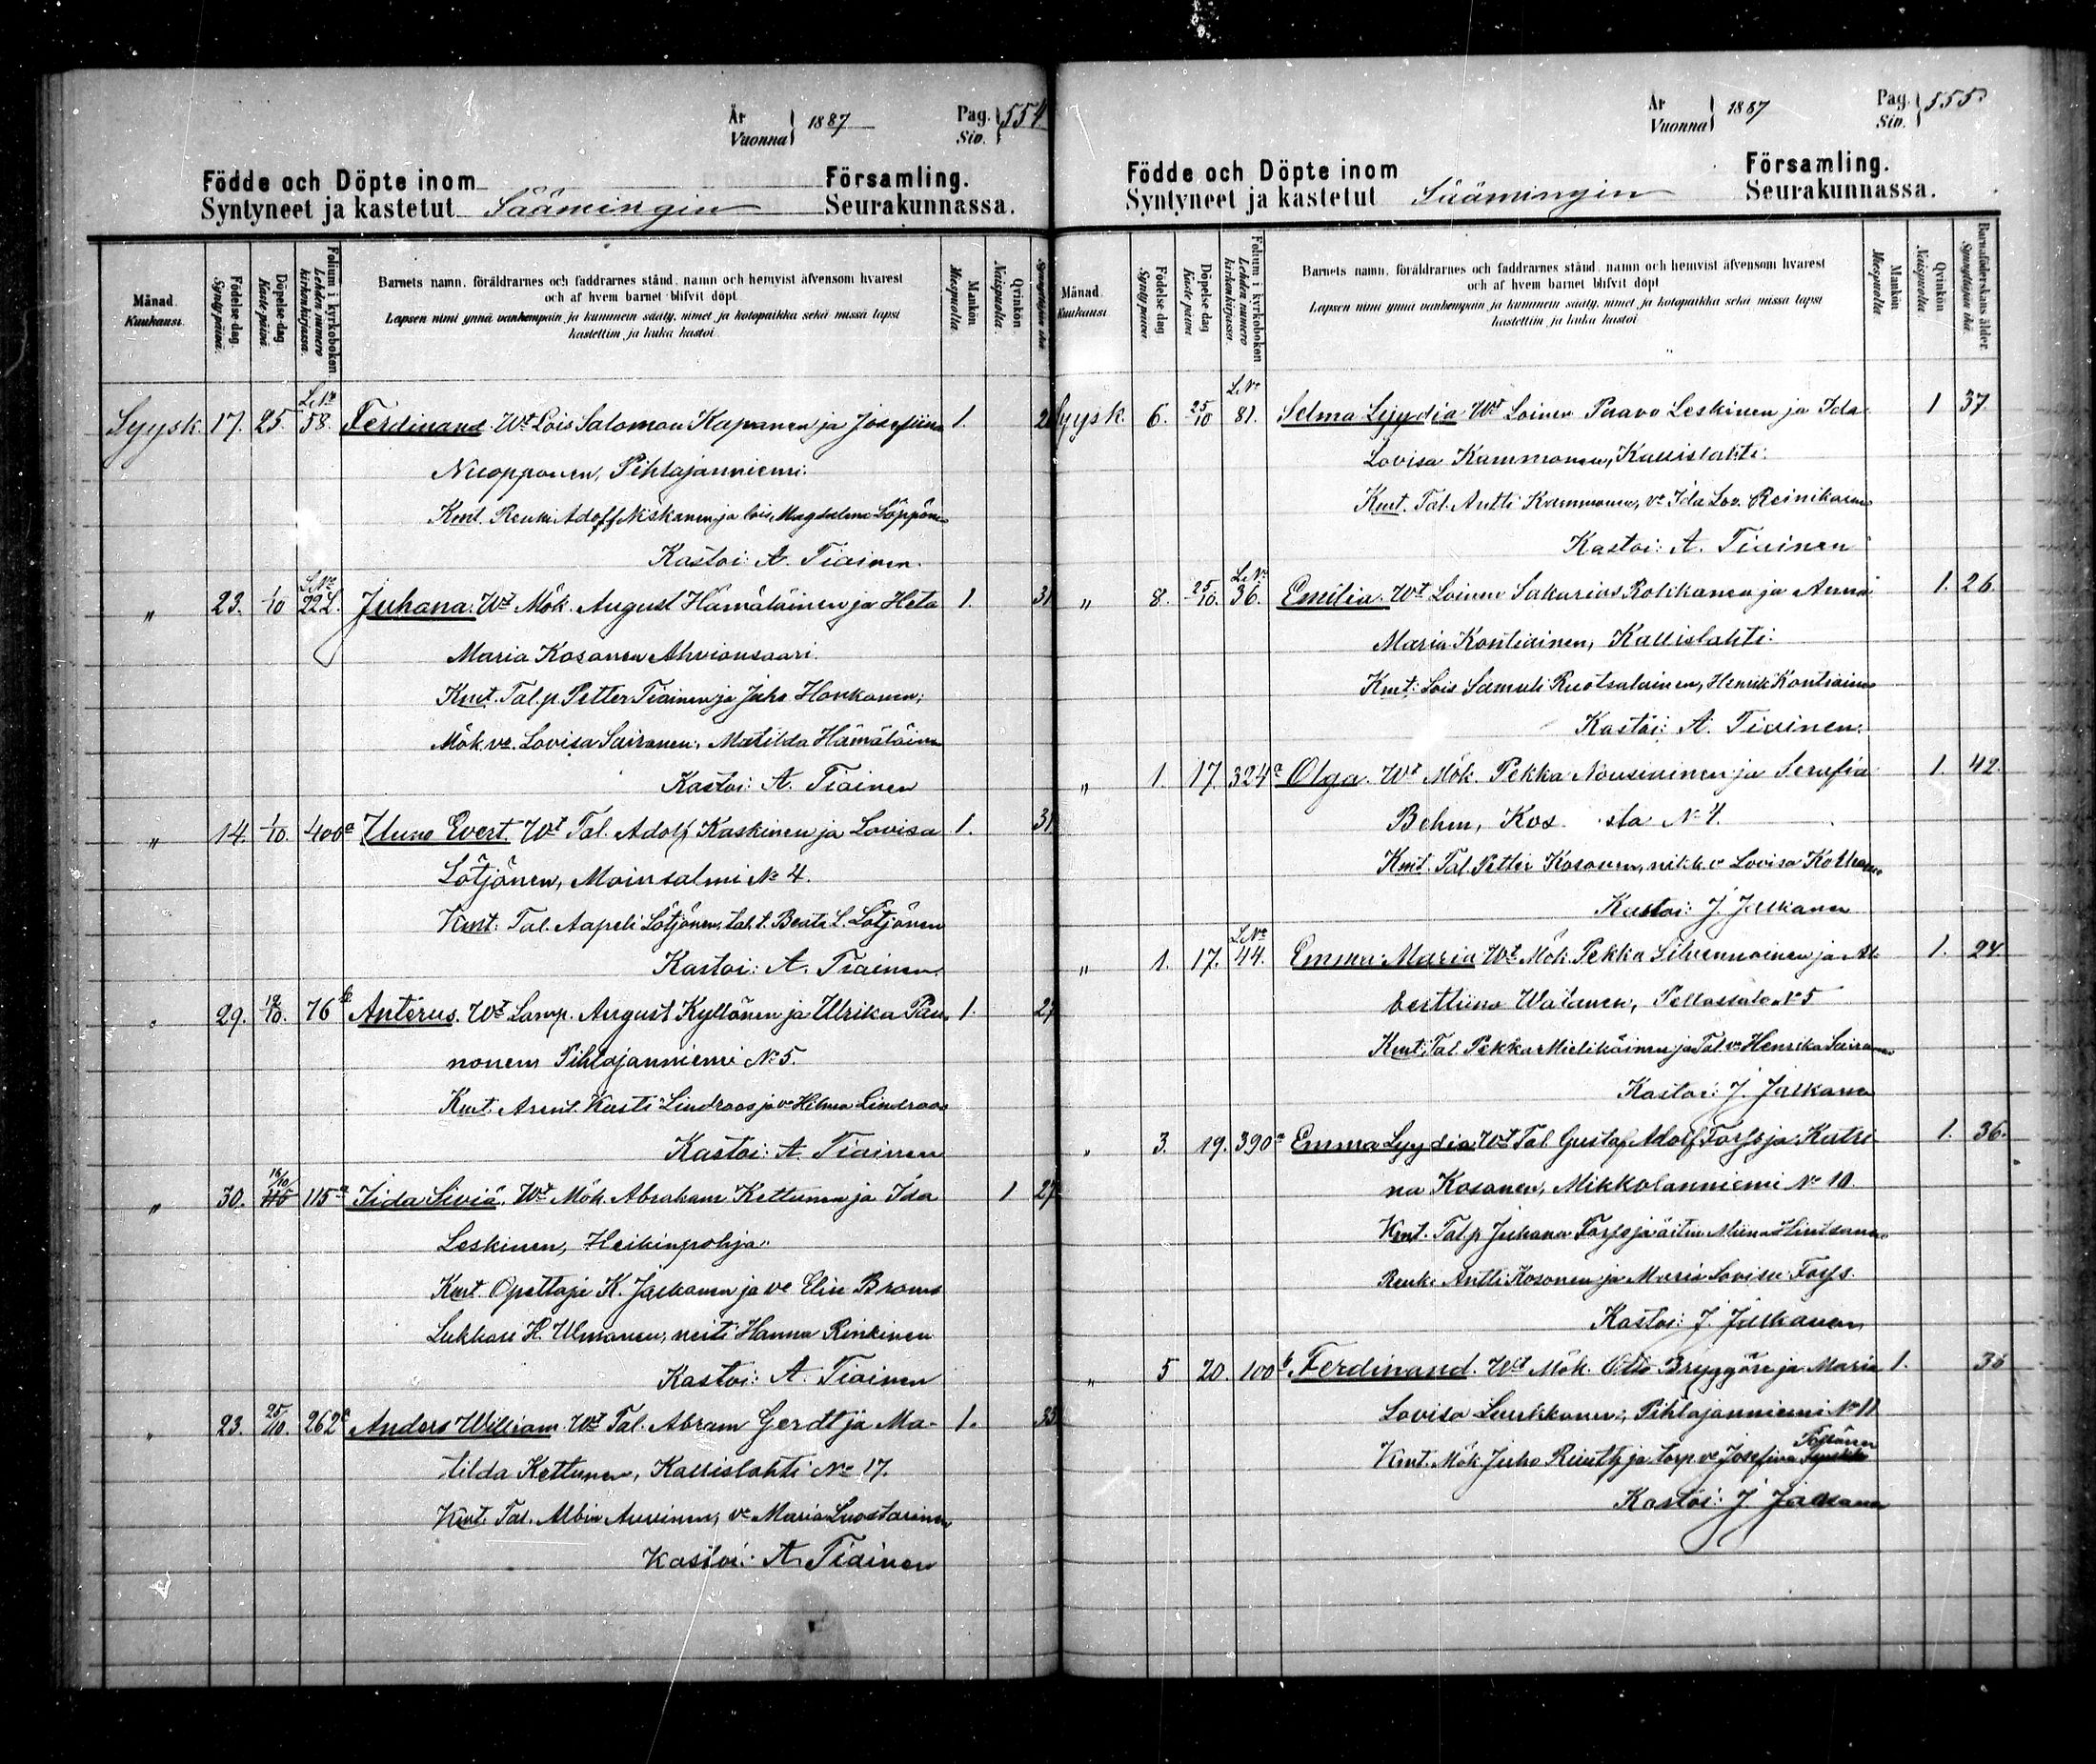 År
Vuonna
1887
Pag.
Siv.
554
Födde och Döpte inom Församling.
Syntyneet ja kastetut Säämingin Seurakunnassa.
Månad.
Kuukausi.
Födelse-dag.
Synty-päivä.
Döpelse-dag.
Kaste-päivä.
Folium i kyrkoboken.
Lehden numero kirkonkirjassa.
Barnets namn, föräldrarnes och faddrarnes stånd, namn och hemvist äfvensom hvarest
och af hvem barnet blifvit döpt.
Lapsen nimi ynnä vanhempain ja kummein sääty, nimet ja kotopaikka sekä missä lapsi
kastettiin ja kuka kastoi.
Mankön
Miespuolta.
Qvinkön
Naispuolta.
Synnyttäjän ikä.
L.No
Syysk. 17. 25. 58. Ferdinand. Wt Lois Salomon Kapanen ja Josefiina 1.
Nuopponen, Pihlajanniemi.
Kmt. Renki Adolf Niskanen ja lois. Magdalena Löppönen
Kastoi: A. Tiainen.
L.No
" 23. 1/10 22 L. Juhana. Wt Mök. August Hämäläinen ja Heta 1. 31
Maria Kosonen Ahvionsaari.
Kmt. Tal.p. Petter Tiainen ja Juho Honkanen;
Mök.vo. Lovisa Sairanen, Matilda Hämäläinen
Kastoi: A. Tiainen
" 14. 1/10. 400a Uuno Evert. Wt Tal. Adolf Kaskinen ja Lovisa 1. 31.
Lötjönen, Moinsalmi No 4.
Kmt: Tal. Aapeli Lötjönen, tal.t. Beata L. Lötjönen
Kastoi: A. Tiainen.
" 29. 12/10. 76b Anterus. Wt Lamp. August Kyllönen ja Ulrika Pau- 1. 27
nonen Pihlajanniemi No 5.
Kmt. Arent. Kusti Lindroos ja vo Hilma Lindroos
Kastoi: A. Tiainen
" 30. 16/10 115a Iida Siviä. Wt Mök. Abraham Kettunen ja Ida 1 27
Leskinen, Heikinpohja.
Kmt. Opettaja K. Jalkanen ja vo Elin Brams
Lukkari H. Ulmanen, neiti Hanna Rinkinen
Kastoi: A. Tiainen
" 23. 25/10. 262a Anders William. Wt Tal. Abram Gerdt ja Ma- 1. 35
tilda Kettunen, Kallislahti No 17.
Kmt. Tal. Albin Auvinen, vo Maria Luostarinen
Kastoi: A. Tiainen
År
Vuonna
1887
Pag.
Siv.
555
Födde och Döpte inom Församling.
Syntyneet ja kastetut Säämingin Seurakunnassa.
Månad.
Kuukausi.
Födelse-dag
Synty-päivä
Döpelse-dag
Kaste-päivä
Folium i kyrkoboken
Lehden numero kirkonkirjassa.
Barnets namn, föräldrarnes och faddrarnes stånd, namn och hemvist äfvensom hvarest
och af hvem barnet blifvit döpt
Lapsen nimi ynnä vanhempain ja kummein sääty, nimet ja kotopaikka sekä missä lapsi
kastettiin ja kuka kastoi
Mankön
Miespuolta
Qvinkön
Naispuolta
Barnaföderskans ålder.
Synnyttäjän ikä.
L.No
Syysk. 6. 25/10 81. Selma Lyydia Wt Loinen Paavo Leskinen ja Ida 1 37
Lovisa Kammonen, Kallislahti.
Kmt. Tal. Antti Kammonen, vo Ida Lov. Reinikainen
Kastoi: A. Tiainen
L.No
" 8. 25/10. 36. Emilia. Wt Loinen Sakarias Rolikanen ja Anna 1. 26.
Maria Kontiainen, Kallislahti.
Kmt: Lois Samuli Ruotsalainen, Henrik Kontiainen
Kastoi: A. Tiainen.
" 1. 17. 324a Olga. Wt Mök. Pekka Nousiainen ja Serafia 1. 42.
Behm, Kos sta No 4.
Kmt. Tal. Petter Kosonen, vo Lovisa
Kastoi: J. Jalkanen
L.No
" 1. 17. 44. Emma Maria Wt Mök. Pekka Silvennoinen ja Al- 1. 24
berttiina Wälanen, Pellossalo No 5
Kmt: Tal. Pekka Mielikäinen ja Tal vo Henrika Sairanen
Kastoi: J. Jalkanen
" 3. 19. 390a Emma Lyydia Wt Tal. Gustaf Adolf Torfs ja Katri- 1. 36.
na Kosonen, Mikkolanniemi No 10
Kmt. Tal.p Juhana Torfs ja äitin Miina Hintsanen
Renki Antti Kosonen ja Maria Lovisa Torfs.
Kastoi: J. Jalkanen
" 5 20. 100b Ferdinand. Wt Mök. Otto Bryggäre ja Maria 1. 35
Lovisa Laukkanen, Pihlajanniemi No 11
Kmt. Mök Juho Ruuth ja torp. vo Josefina
Kastoi: J Jalkanen